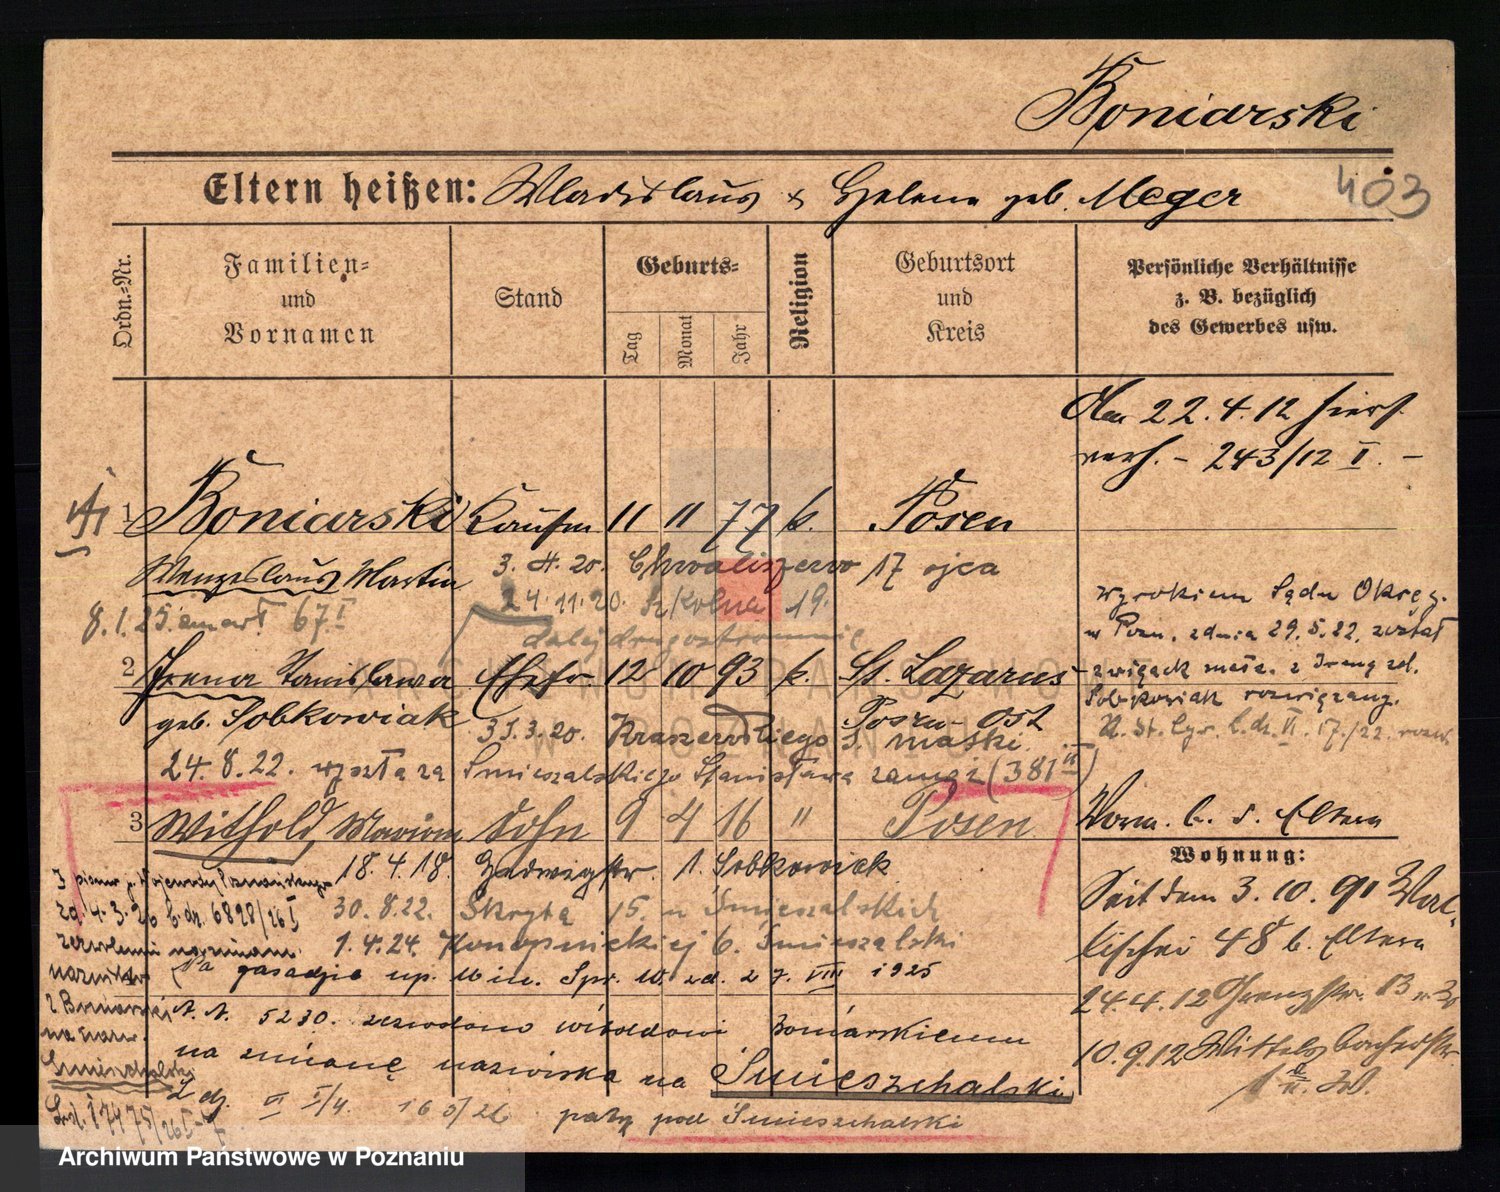 Boniarski
Eltern heißen: Wladislaus & Helene geb. Meger
403
Ordn.-Nr.
Familien-
und
Vornamen
Stand
Geburts-
Tag
Monat
Jahr
Religion
Geburtsort
und
Kreis
Persönliche Verhältnisse
z. B. bezüglich
des Gewerbes usw.
22.4.12
verh. - 243/12 I. -
1 Boniarski Kaufm 11 11 77 k. Posen
Wenzeslaus Martin 3. 4. 20. Chwaliszewo 17 ojca
24.11.20. Szkolna 19.
8.1.25. zmarł 67 I
dalej drugostronnie
wyrokiem Sądu Okręg.
w Pozn. z dnia 29.5.22. został
związek małż. z Ireną zd.
Sobkowiak rozwiązany.
2 Irena Stanisława Ehefr 12 10 93 k. St. Lazarus
geb. Sobkowiak Posen-Ost
31.3.20. Kraszewskiego 3. matki
24.8.22. wyszła za Smieszalskiego Stanisława zamąż (381 II)
3 Withold, Marian Sohn 9 4 16 " Posen
Worm. b. d. Eltern
Wohnung:
18.4.18. Hedwigstr 1. Sobkowiak
30.8.22. Skryta 15. u Smieszalskich
1.4.24. Konopnickiej 6. Smieszalski
Seit dem 3.10.91 Wal-
lischei 48 b. Eltern
24.4.12 Grenzstr. 13
10.9.12 Wittelsbacherstr
z d. 4.3.26 L.dz. 6828/26 I
nazwiska
z Boniarski
na nazw.
Smieszchalski
Na zasadzie up. Min. Spr. W. zd. 27. VIII 1925
A. A. 5230. zezwolono Witoldowi Boniarskiemu
na zmianę nazwiska na Smieszchalski
L. dz. II I/4. 165/26 patrz pod Smieszchalski
Archiwum Państwowe w Poznaniu